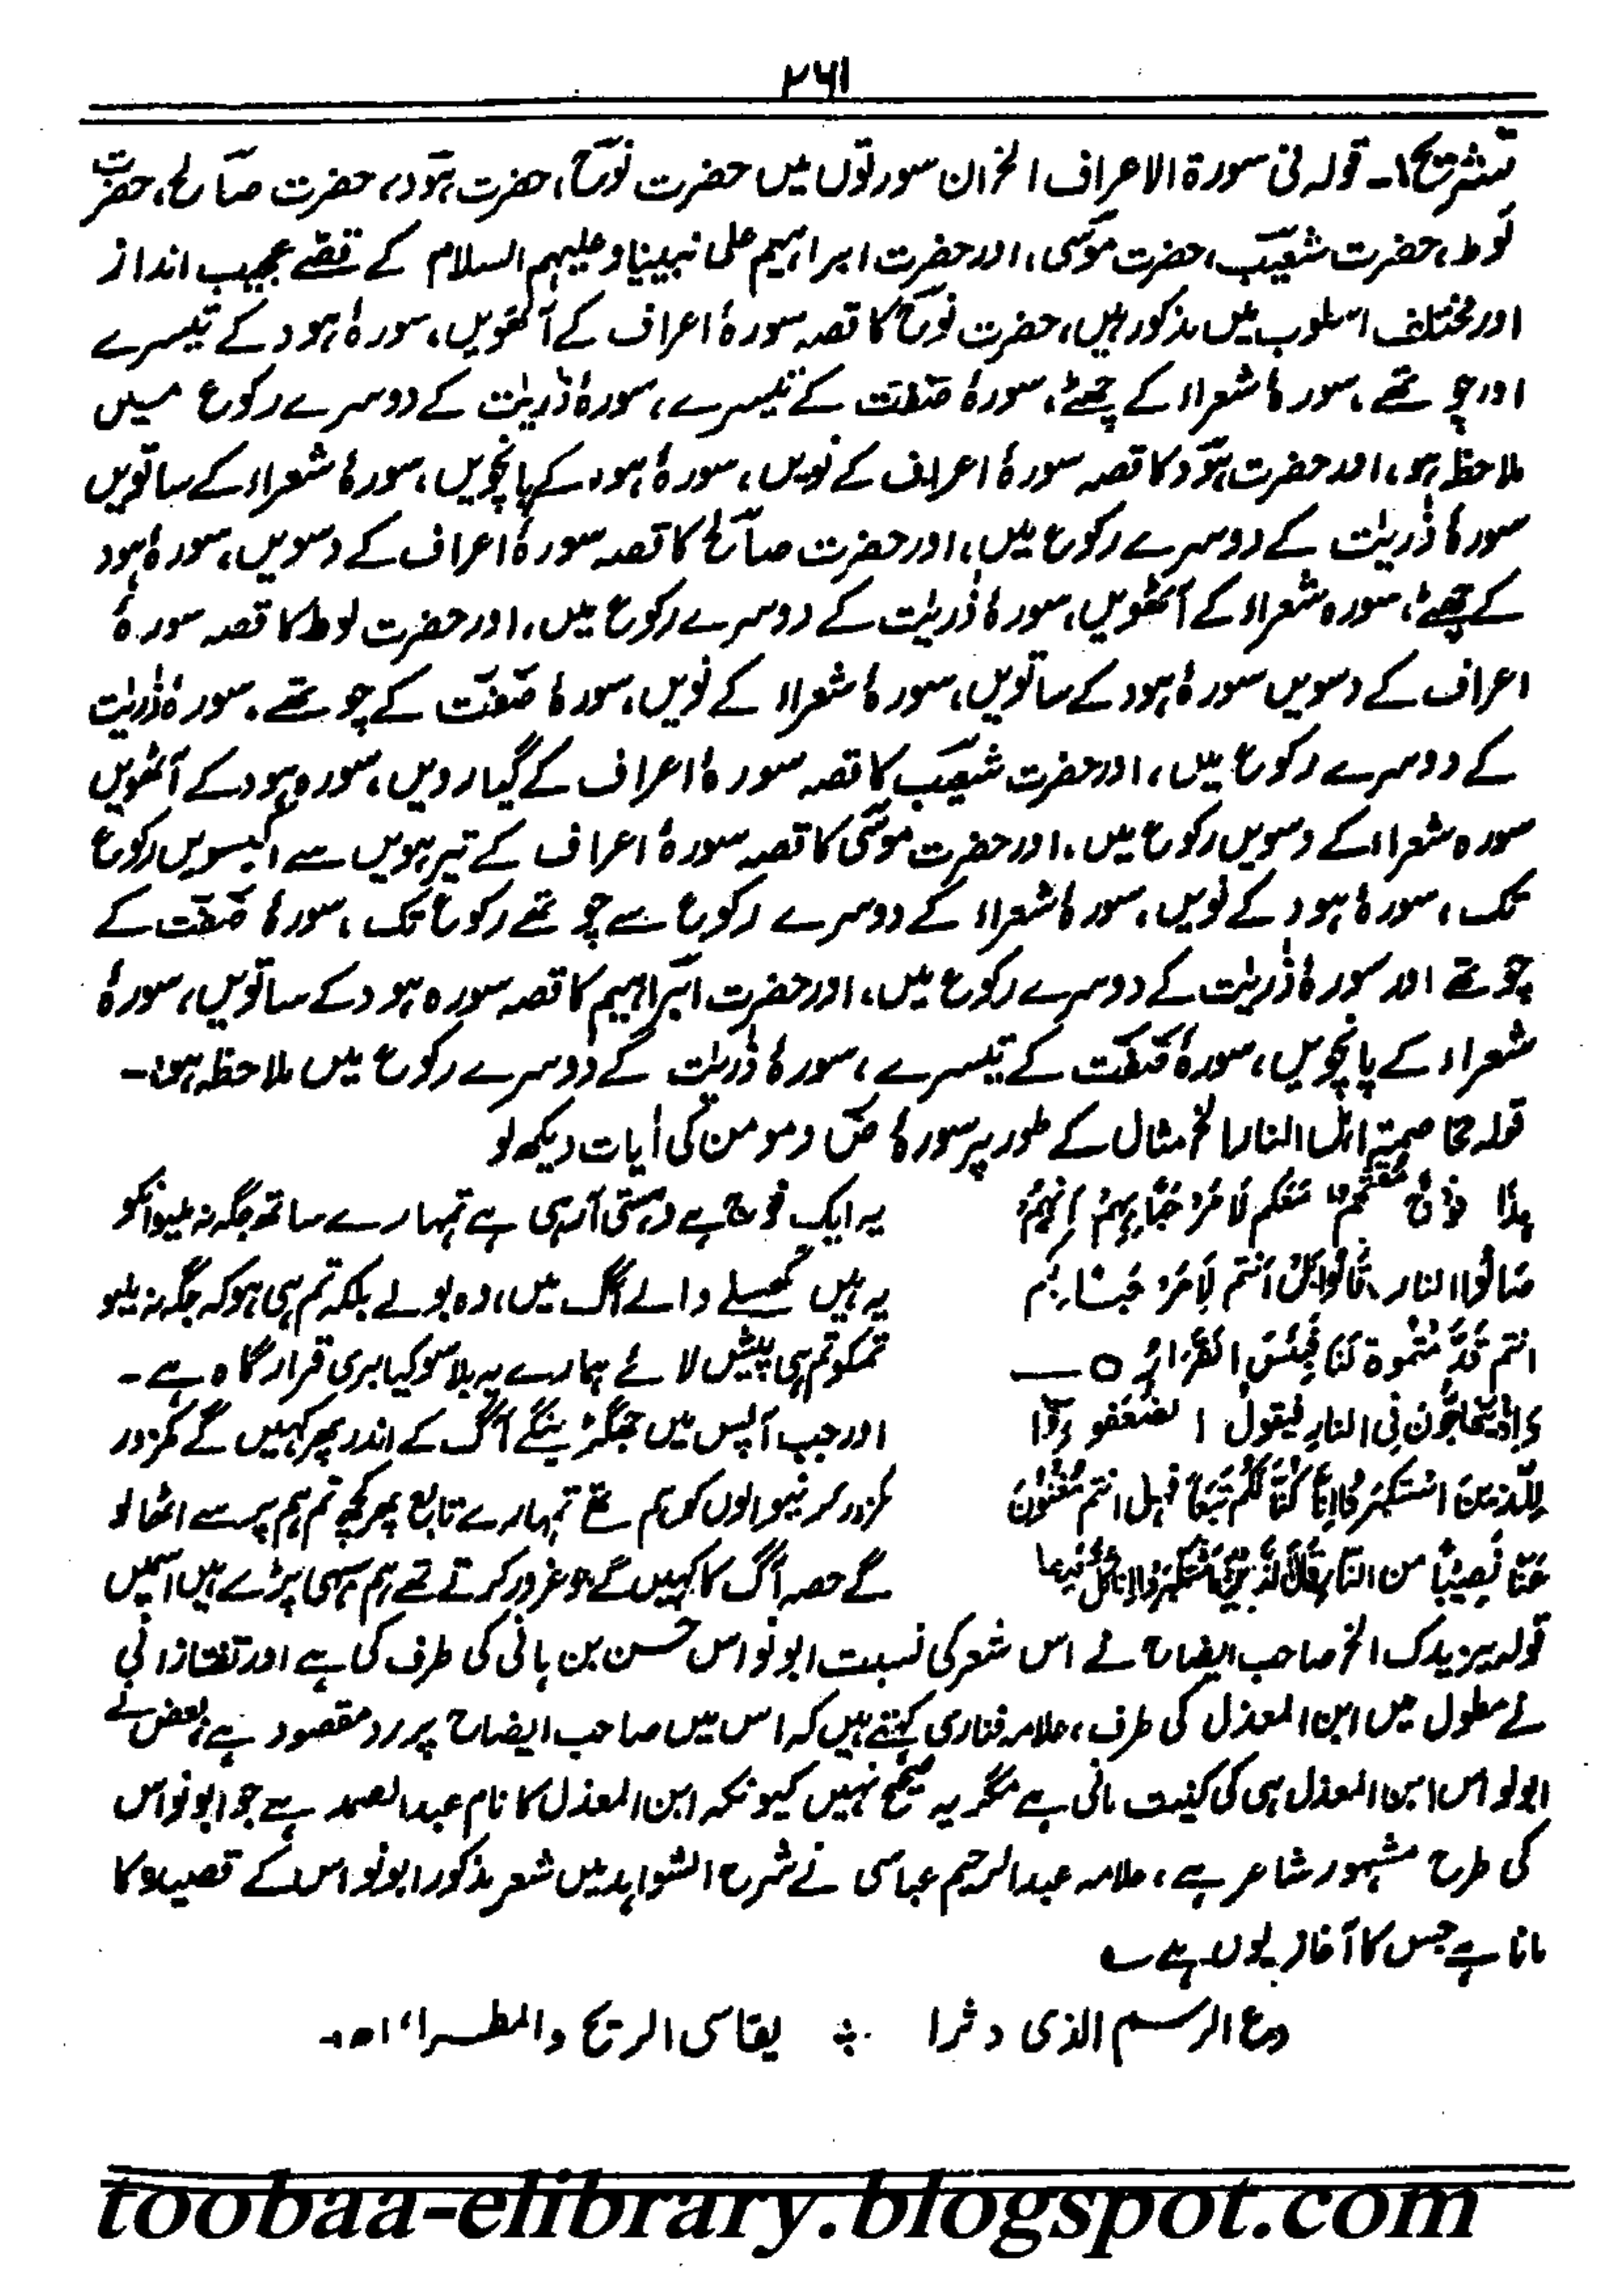 ۲۶۱
تشریح۱۔ قولہ فی سورۃ الاعراف الخ ان سورتوں میں حضرت نوحؑ، حضرت ہودؑ، حضرت صالحؑ، حضرت
لوط، حضرت شعیبؑ، حضرت موسیٰؑ، اور حضرت ابراہیم علی نبینا وعلیہم السلام کے قصے عجیب انداز
اور مختلف اسلوب میں مذکور ہیں، حضرت نوحؑ کا قصہ سورۂ اعراف کے آٹھویں، سورۂ ہود کے تیسرے
اور چوتھے، سورۂ شعراء کے چھٹے، سورۂ صٰفٰت کے تیسرے، سورۂ ذٰریٰت کے دوسرے رکوع میں
ملاحظہ ہو، اور حضرت ہودؑ کا قصہ سورۂ اعراف کے نویں، سورۂ ہود کے پانچویں، سورۂ شعراء کے ساتویں
سورۂ ذٰریٰت کے دوسرے رکوع میں، اور حضرت صالحؑ کا قصہ سورۂ اعراف کے دسویں، سورۂ ہود
کے چھٹے، سورہ شعراء کے آٹھویں، سورۂ ذٰریٰت کے دوسرے رکوع میں، اور حضرت لوط کا قصہ سورۂ
اعراف کے دسویں سورۂ ہود کے ساتویں، سورۂ شعراء کے نویں، سورۂ صٰفٰت کے چوتھے، سورۂ ذٰریٰت
کے دوسرے رکوع میں، اور حضرت شعیبؑ کا قصہ سورۂ اعراف کے گیارویں، سورہ ہود کے آٹھویں
سورہ شعراء کے دسویں رکوع میں، اور حضرت موسیٰؑ کا قصہ سورۂ اعراف کے تیرہویں سے اکیسویں رکوع
تک، سورۂ ہود کے نویں، سورۂ شعراء کے دوسرے رکوع سے چوتھے رکوع تک، سورۂ صٰفٰت کے
چوتھے اور سورۂ ذٰریٰت کے دوسرے رکوع میں، اور حضرت ابراہیمؑ کا قصہ سورہ ہود کے ساتویں، سورۂ
شعراء کے پانچویں، سورۂ صٰفٰت کے تیسرے، سورۂ ذٰریٰت کے دوسرے رکوع میں ملاحظہ ہو۔
قولہ مخاصمۃ اہل النار الخ مثال کے طور پر سورۂ صٓ و مومن کی آیات دیکھ لو
ہٰذَا فَوْجٌ مُّقْتَحِمٌ مَّعَکُم لَا مَرْحَبًا بِہِمْ اِنَّہُمْ یہ ایک فوج ہے دھنستی آرہی ہے تمہارے ساتھ جگہ نہ ملیو انکو
صَالُوا النار، قَالُوا بَلْ اَنتم لَا مَرْحَبًا بِکُم یہ ہیں گھسنے والے آگ میں، وہ بولے بلکہ تم ہی ہو کہ جگہ نہ ملیو
انتم قَدَّمْتُمُوہُ لَنَا فَبِئْسَ الْقَرَارُ ○ — تمکو تم ہی پیش لائے ہمارے یہ بلا سو کیا بری قرارگاہ ہے۔
وَاِذْ یَتَحَاجُّونَ فِی النارِ فَیَقُولُ الضُّعَفٰٓؤُا اور جب آپس میں جھگڑینگے آگ کے اندر پھر کہیں گے کمزور
لِلَّذِینَ اسْتَکْبَرُوا اِنَّا کُنَّا لَکُمْ تَبَعًا فَہَل انتم مُّغْنُوْنَ کمزور کرنیوالوں کو ہم تھے تمہارے تابع پھر کچھ تم ہم پر سے اٹھا لو
عَنَّا نَصِیْبًا من النَّارِ قَالَ الَّذِیْنَ اسْتَکْبَرُوا اِنَّا کُلٌّ فِیْہَا گے حصہ آگ کا کہیں گے جو غرور کرتے تھے ہم سبھی پڑے ہیں اسمیں
قولہ یزیدک الخ صاحب ایضاح نے اس شعر کی نسبت ابونواس حسن بن ہانی کی طرف کی ہے اور تفتازانی
نے مطول میں ابن المعذل کی طرف، علامہ فناری کہتے ہیں کہ اس میں صاحب ایضاح پر رد مقصود ہے، بعض نے
ابونواس ابن المعذل ہی کی کنیت مانی ہے مگر یہ صحیح نہیں کیونکہ ابن المعذل کا نام عبدالصمد ہے جو ابونواس
کی طرح مشہور شاعر ہے، علامہ عبدالرحیم عباسی نے شرح الشواہد میں شعر مذکور ابونواس کے قصیدہ کا
مانا ہے جس کا آغاز یوں ہے ؎
دع الرسم الذی دثرا ∴ یقاسی الریح والمطرا ۱۲
toobaa-elibrary.blogspot.com